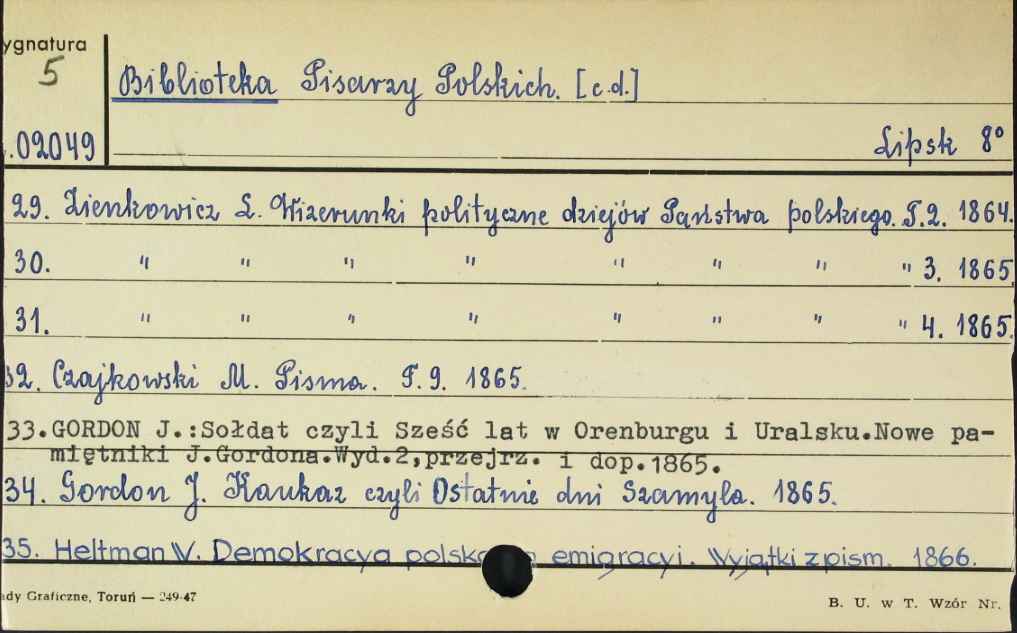 ygnatura
5
Biblioteka Pisarzy Polskich. [c.d.]
.02049
Lipsk 8°
29. Zienkowicz L. Wizerunki polityczne dziejów Państwa polskiego. T.2. 1864.
30. " " " " " " " " 3. 1865.
31. " " " " " " " " 4. 1865.
32. Czajkowski M. Pisma. T. 9. 1865.
33.GORDON J.:Sołdat czyli Sześć lat w Orenburgu i Uralsku.Nowe pa-
miętniki J.Gordona.Wyd.2,przejrz. i dop.1865.
34. Gordon J. Kaukaz czyli Ostatnie dni Szamyla. 1865.
35. Heltman W. Demokracya polska emigracyi. Wyjątki z pism. 1866.
ady Graficzne, Toruń — 249-47
B. U. w T. Wzór Nr.